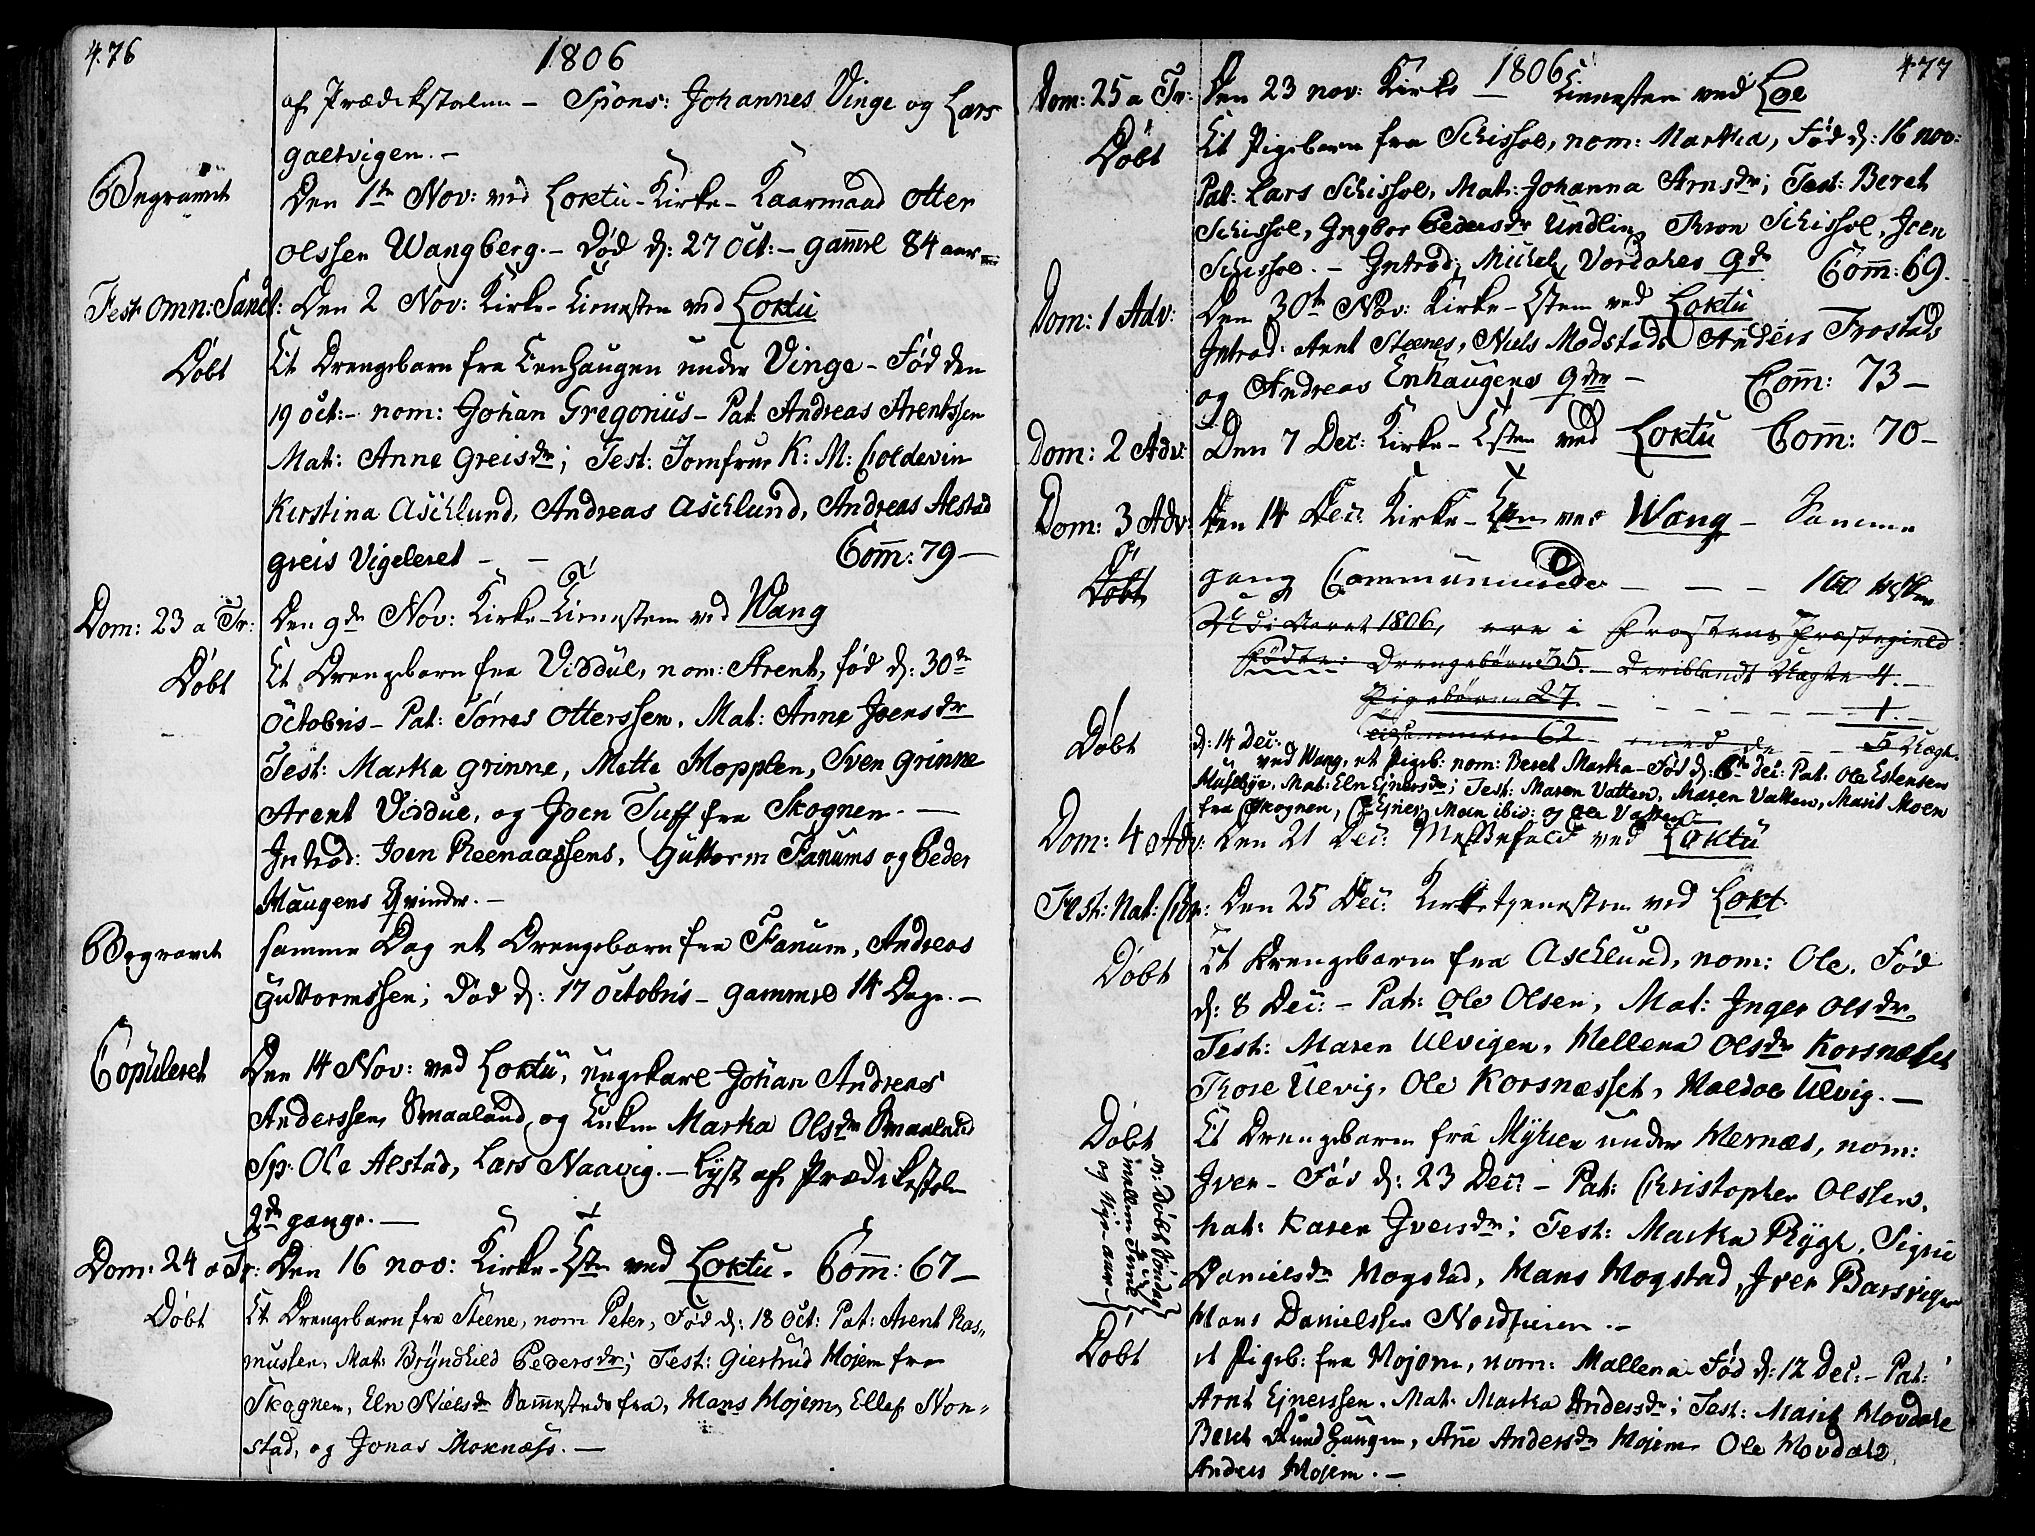 476
1806
af Prædikstolen - Spons: Johannes Vinge og Lars
galtvigen. -
Begravet
Den 1te Nov: ved Loktu-Kirke- Kaarmand Otter
Olssen Wangberg. - Død d: 27 Oct: - gamel 84 aar -
Fest: Omn: Sanct: Den 2 Nov: Kirke-Tienesten ved Loktu
Døbt
Et Drengebarn fra Eenhaugen under Vinge - Fød den
19 Oct: - nom: Johan Gregorius - Pat: Andreas Arentssen
Mat: Anne Greisdr; Test: Jomfrue K: M: Coldevin
Kirstina Aschlund, Andreas Aschlund, Andreas Alstad
Greis Vigeleret - - Com: 79 -
Dom: 23 a Tr: Den 9de Nov: Kirke-Tienesten ved Wang
Døbt
Et Drengebarn fra Viddul, nom: Arent, fød d: 30te
Octobris - Pat: Tørres Otterssen, Mat: Anne Joensdr
Test: Marka Grinne, Mette Hopplen, Sven Grinne
Arent Viddue, og Joen Tuff fra Skognen. -
Introd: Joen Reenaassens, Guttorm Fanums og Peder
Haugens Qvinder. -
Begravet
samme Dag et Drengebarn fra Fanum, Andreas
Guttormssen; død d: 17 Octobris - gammel 14 Dage. -
Copuleret
Den 14 Nov: ved Loktu, ungekarl Johan Andreas
Anderssen Smaaland, og Enken Marka Olsdr Smaaland
Sp: Ole Alstad, Lars Naavig. - Lyst af Prædikestolen
2de gange. -
Dom: 24 a Tr: Den 16 nov: Kirke-Tsten ved Loktu. Com: 67 -
Døbt
Et Drengebarn fra Steene, nom Peter, Fød d: 18 Oct: Pat: Arent Ras-
mussen, Mat: Bryndhild Pedersdr; Test: Giertrud Hojem fra
Skognen, Eln Nielsdr Sammestedsfra, Hans Hojem, Ellef Non-
stad, og Jonas Moxnæss. -
1806
477
Dom: 25 a Tr: Den 23 nov: Kirke Tienesten ved Loe
Døbt
Et Pigebarn fra Schissol, nom: Martha, Fød d: 16 nov:
Pat: Lars Schissol, Mat: Johanna Arnsdr; Test: Beret
Schissol, Ingbor Pedersdr Undlin, Thron Schissol, Joen
Schissol. - Introd; Michel Vordales Qde Com: 69.
Dom: 1 Adv: Den 30te Nov: Kirke-Tsten ved Loktu
Introd: Arnt Steenes, Niels Modstads Anders Frostads
og Andreas Enhaugens Qder - Com: 73 -
Dom: 2 Adv: Den 7 Dec: Kirke-Tsten ved Loktu Com: 70 -
Dom: 3 Adv: Den 14 Dec: Kirke-Tsten ved Wang - Samme
Døbt
gang Communicerede - - - 100
Udi Aaret 1806, ere i Frostens Præstegield
Fødte: Drengebørn 35. - Deriblandt Uægte 4. -
Pigebørn 27 - - - - 1. -
62 - med de - - 5 Uægte
Døbt
d: 14 Dec: ved Wang, et Pigeb: nom: Beret Marka - Fød d: 6te Dec: Pat: Ole Estensen
Husebye, Mat: Eln Ejnersdr; Test: Maren Vatten, Maren Vatten, Marit Moen
fra Skognen, Ejner Moen ibid: og Ole Vatten -
Dom: 4 Adv: Den 21 Dec: Messefald ved Loktu
Fest: Nat: Chr: Den 25 Dec: Kirketjenesten ved Lokt
Døbt
Et Drengebarn fra Aschlund, nom: Ole, Fød
d: 8 Dec: - Pat: Ole Olsen, Mat: Inger Olsdr
Test: Maren Ulvigen, Hellena Olsdr Korsnæsset
Thore Ulvig, Ole Korsnæsset, Haldoe Ulvig. -
Døbt
Et Drengebarn fra Myhren under Hernæs, nom:
Iver - Fød d: 23 Dec: - Pat: Christopher Olssen,
Mat: Karen Iversdr; Test: Marka Rygt, Sigrie
Danielsdr Mogstad, Hans Mogstad, Iver Barsvigen
Hans Danielssen Nordfieren. -
n: Døbt Søndag
imellem Juul
og Nye-aar
Døbt
et Pigeb: fra Hojem, nom: Mallena Fød d: 12 Dec: - Pat:
Arnt Ejnerssen, Mat: Marka Andersdr; Test: Marit Hovdahl
Beret Rundhaugen, Ane Andersdr Hojem, Ole Hovdahl,
Anders Hojem. -